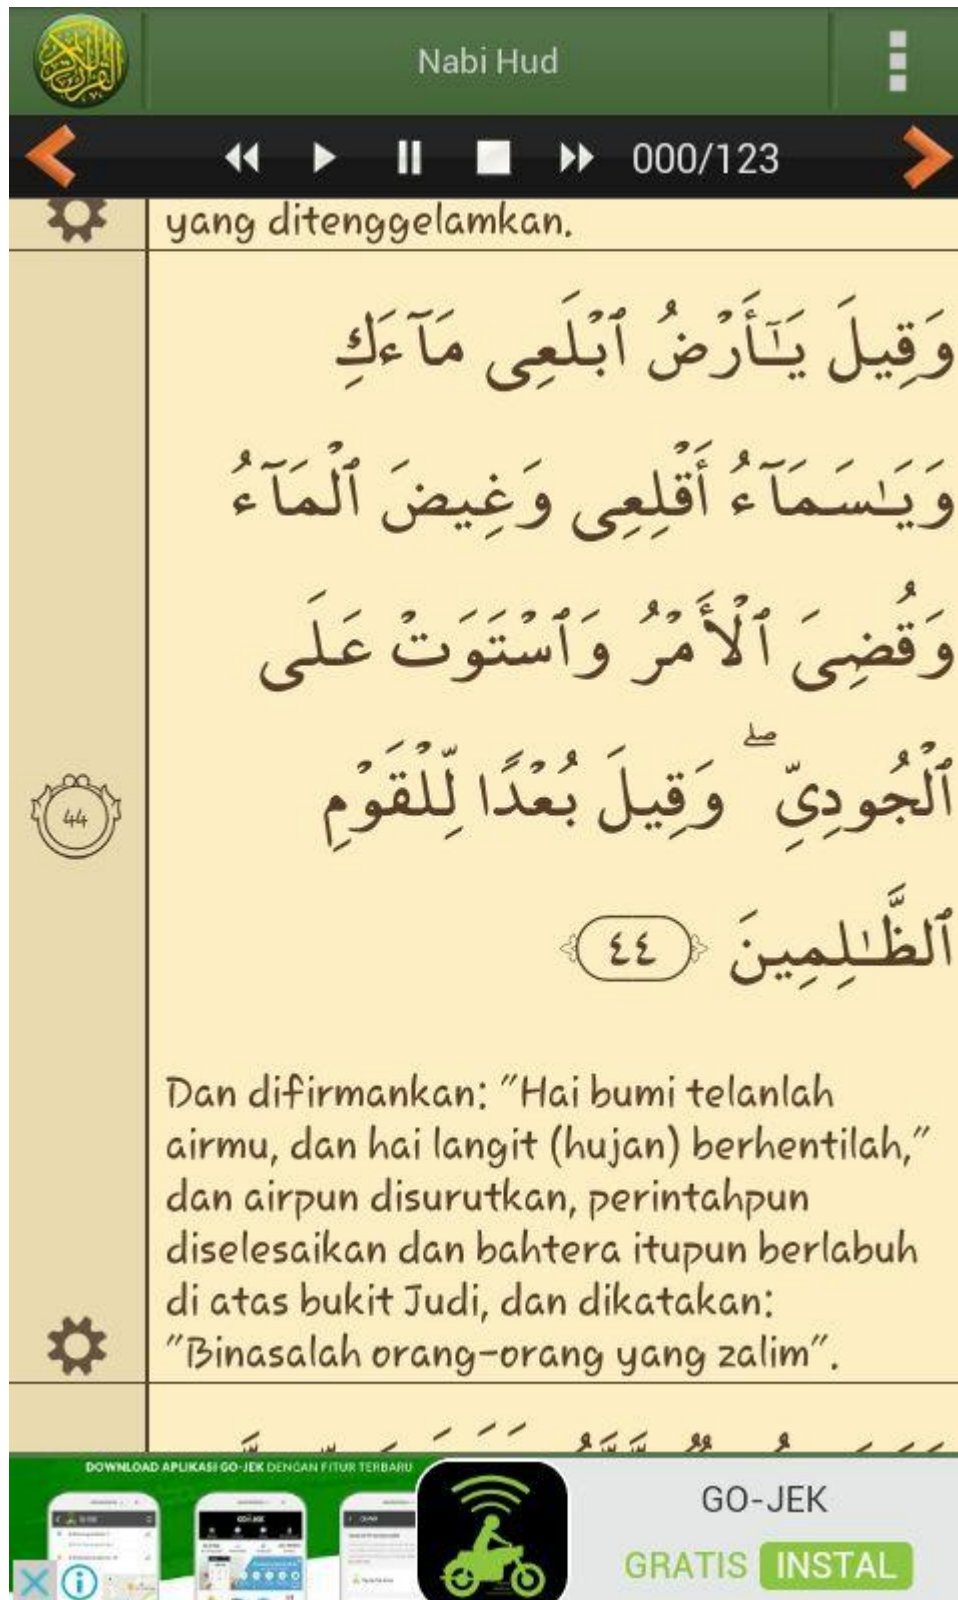 Nabi Hud
000/123
yang ditenggelamkan.
وَقِيلَ يَـٰٓأَرْضُ ٱبْلَعِى مَآءَكِ
وَيَـٰسَمَآءُ أَقْلِعِى وَغِيضَ ٱلْمَآءُ
وَقُضِىَ ٱلْأَمْرُ وَٱسْتَوَتْ عَلَى
ٱلْجُودِىِّ ۖ وَقِيلَ بُعْدًا لِّلْقَوْمِ
ٱلظَّـٰلِمِينَ ٤٤
44
Dan difirmankan: "Hai bumi telanlah
airmu, dan hai langit (hujan) berhentilah,"
dan airpun disurutkan, perintahpun
diselesaikan dan bahtera itupun berlabuh
di atas bukit Judi, dan dikatakan:
"Binasalah orang-orang yang zalim".
DOWNLOAD APLIKASI GO-JEK DENGAN FITUR TERBARU
GO-JEK
GRATIS INSTAL